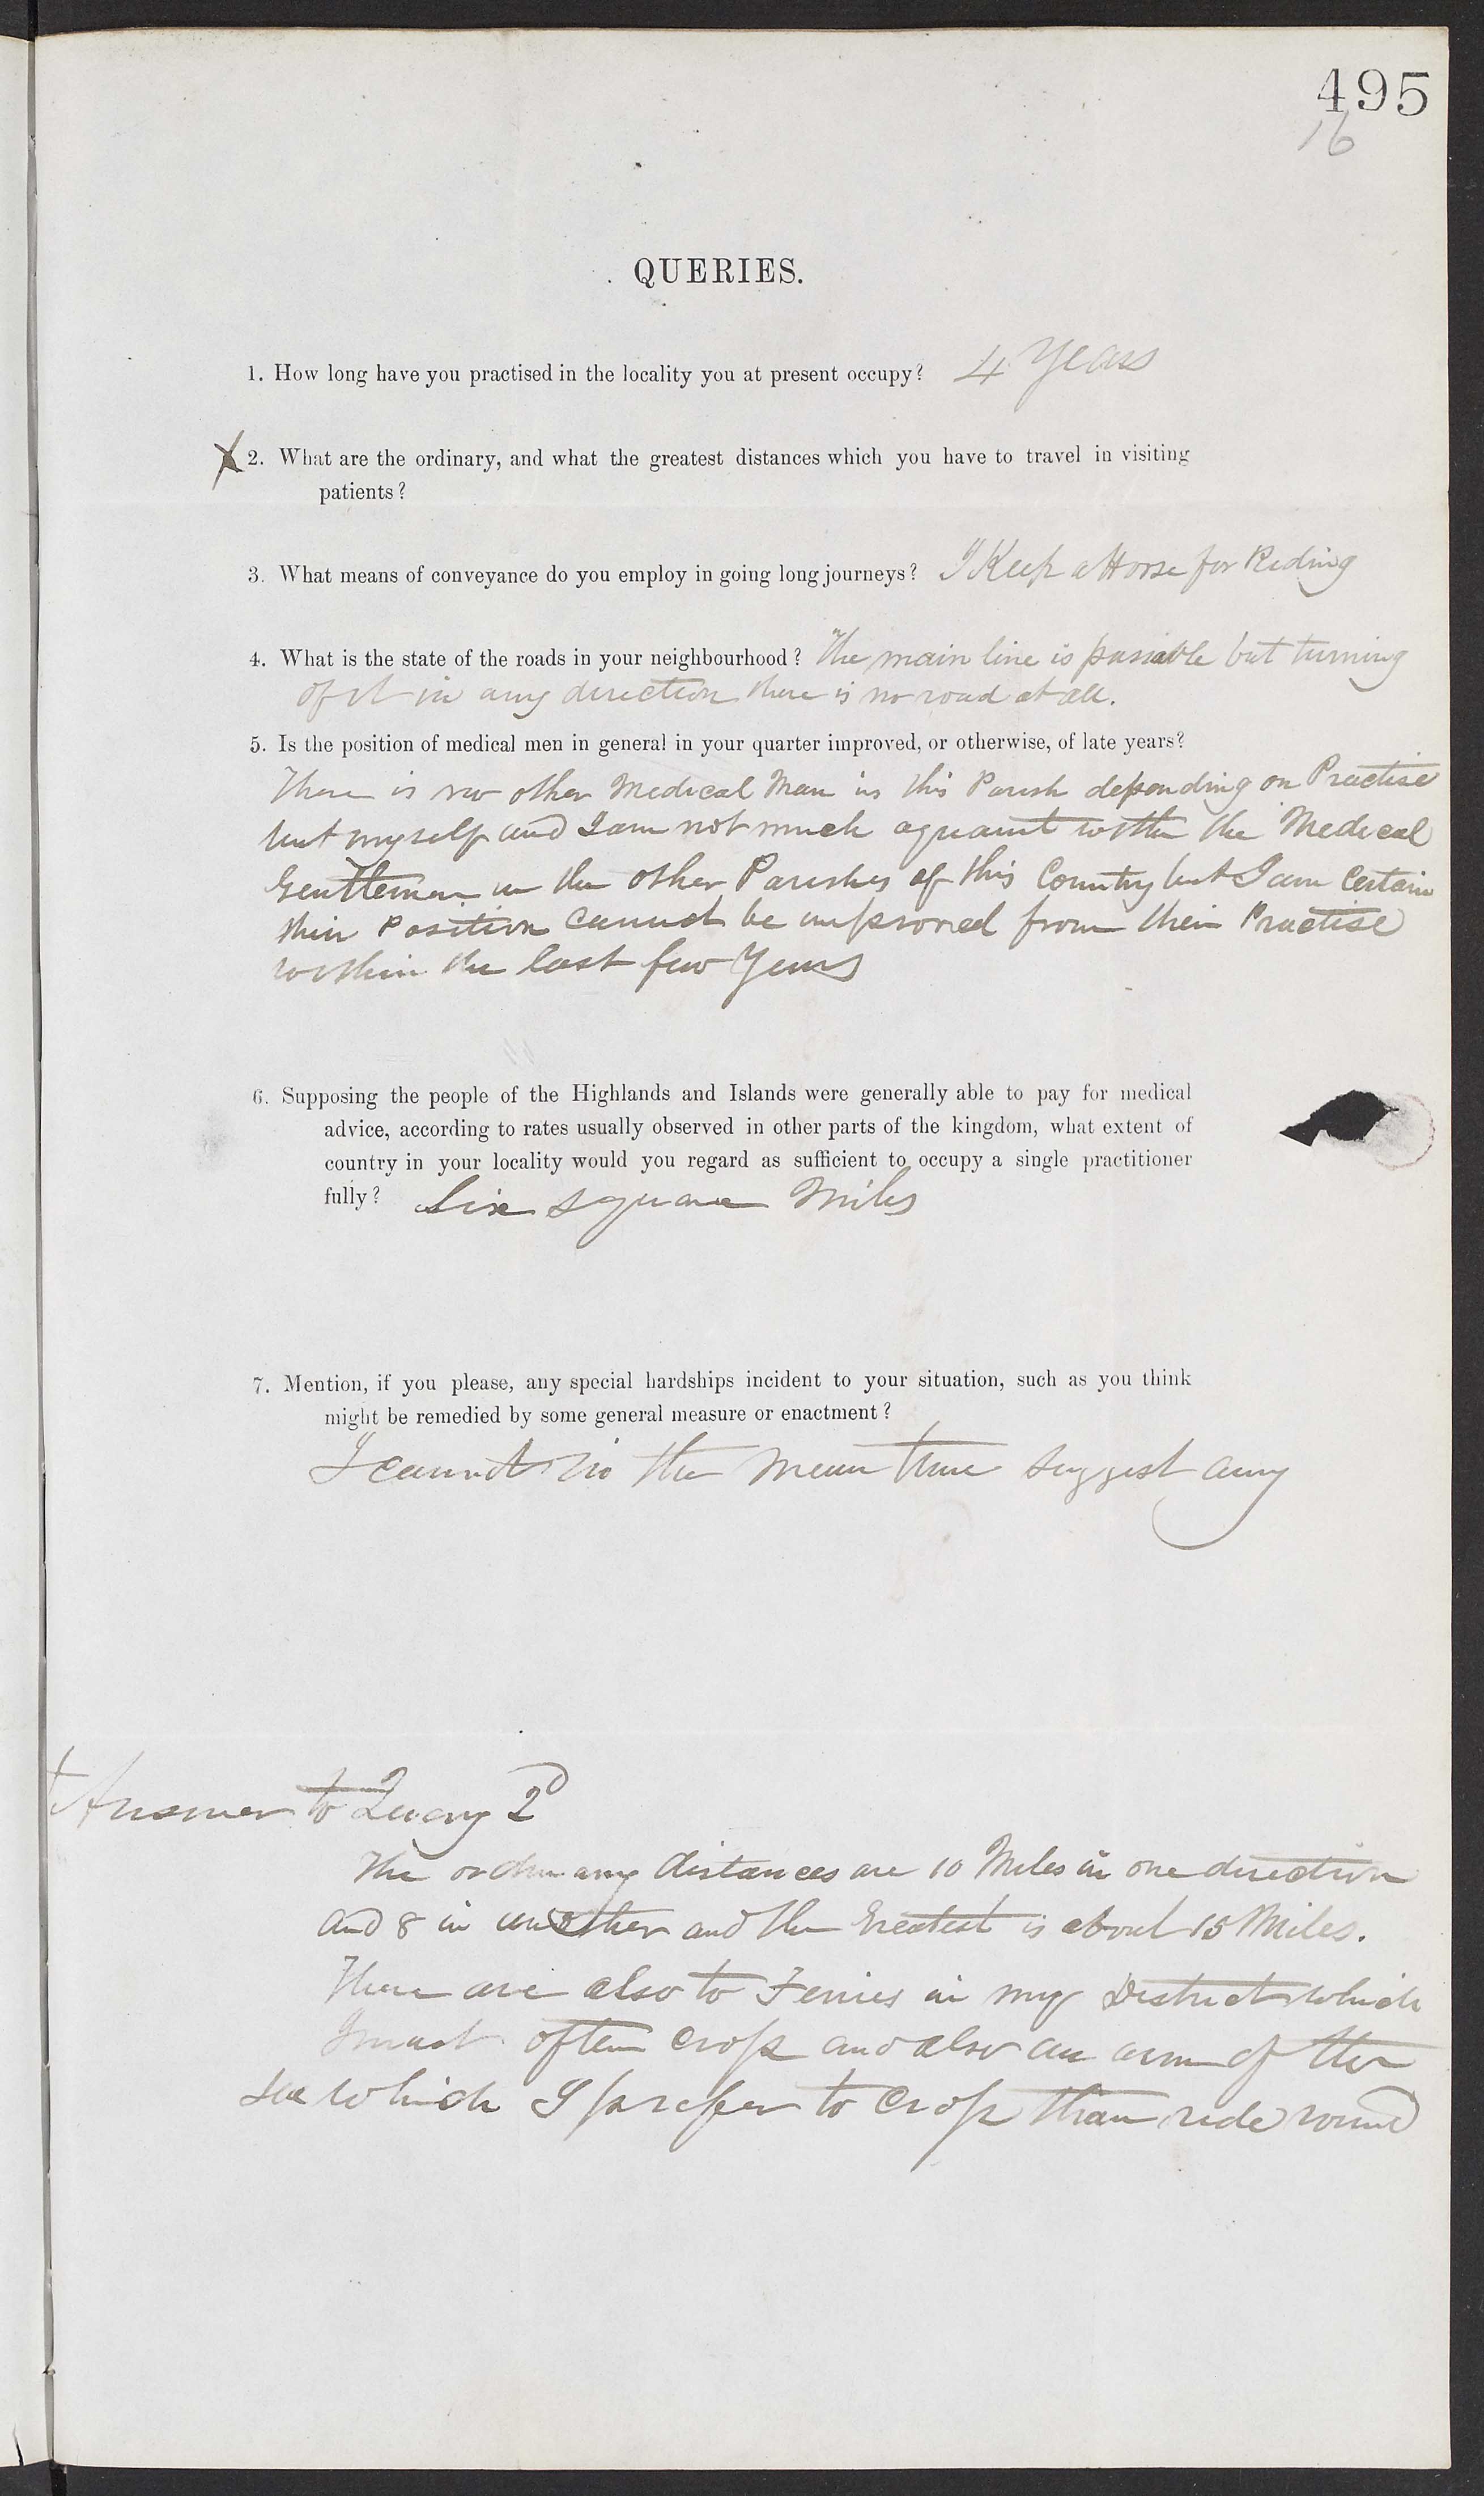 495
16
QUERIES.
1. How long have you practised in the locality you at present occupy? 4 Years
X 2. What are the ordinary, and what the greatest distances which you have to travel in visiting
patients?
3. What means of conveyance do you employ in going long journeys? I Keep a Horse for Riding
4. What is the state of the roads in your neighbourhood? The main line is passable but turning
of it in any direction there is no road at all.
5. Is the position of medical men in general in your quarter improved, or otherwise, of late years?
There is no other Medical Man in this Parish depending on Practise
but myself and I am not much aquaint with the Medical
Gentlemen in the other Parishes of this Country but I am Certain
their Position cannot be improved from their Practise
within the last few Years
6. Supposing the people of the Highlands and Islands were generally able to pay for medical
advice, according to rates usually observed in other parts of the kingdom, what extent of
country in your locality would you regard as sufficient to occupy a single practitioner
fully? Six square Miles
7. Mention, if you please, any special hardships incident to your situation, such as you think
might be remedied by some general measure or enactment?
I cannot in the mean time suggest any
+ Answer to Query 2d
The ordinary distances are 10 Miles in one direction
and 8 in another and the Greatest is about 15 Miles.
There are also to Ferries in my District which
I must often cross and also an arm of the
sea which I prefer to cross than ride round